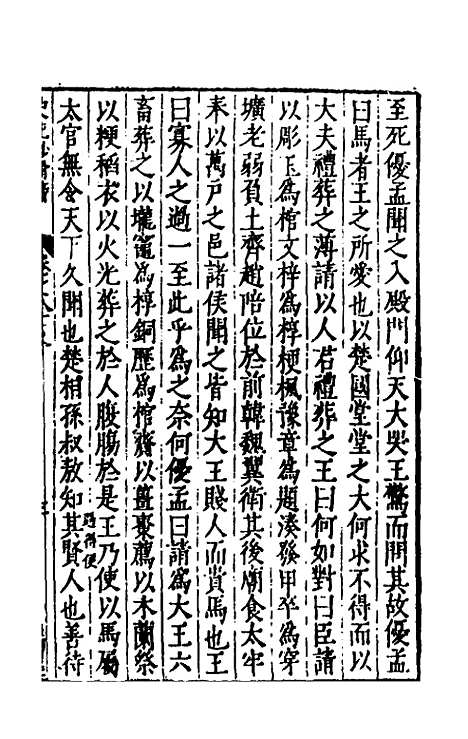 至死優孟聞之入殿門仰天大哭王驚而問其故優孟
曰馬者王之所愛也以楚國堂堂之大何求不得而以
大夫禮葬之薄請以人君禮葬之王曰何如對曰臣請
以彫玉爲棺文梓爲椁楩楓豫章爲題湊發甲卒爲穿
壙老弱負土齊趙陪位於前韓魏翼衛其後廟食太牢
奉以萬戶之邑諸侯聞之皆知大王賤人而貴馬也王
曰寡人之過一至此乎爲之奈何優孟曰請爲大王六
畜葬之以壠竈爲椁銅歷爲棺齎以薑棗薦以木蘭祭
以粳稻衣以火光葬之於人腹腸於是王乃使以馬屬
太官無令天下久聞也楚相孫叔敖知其賢人也善待